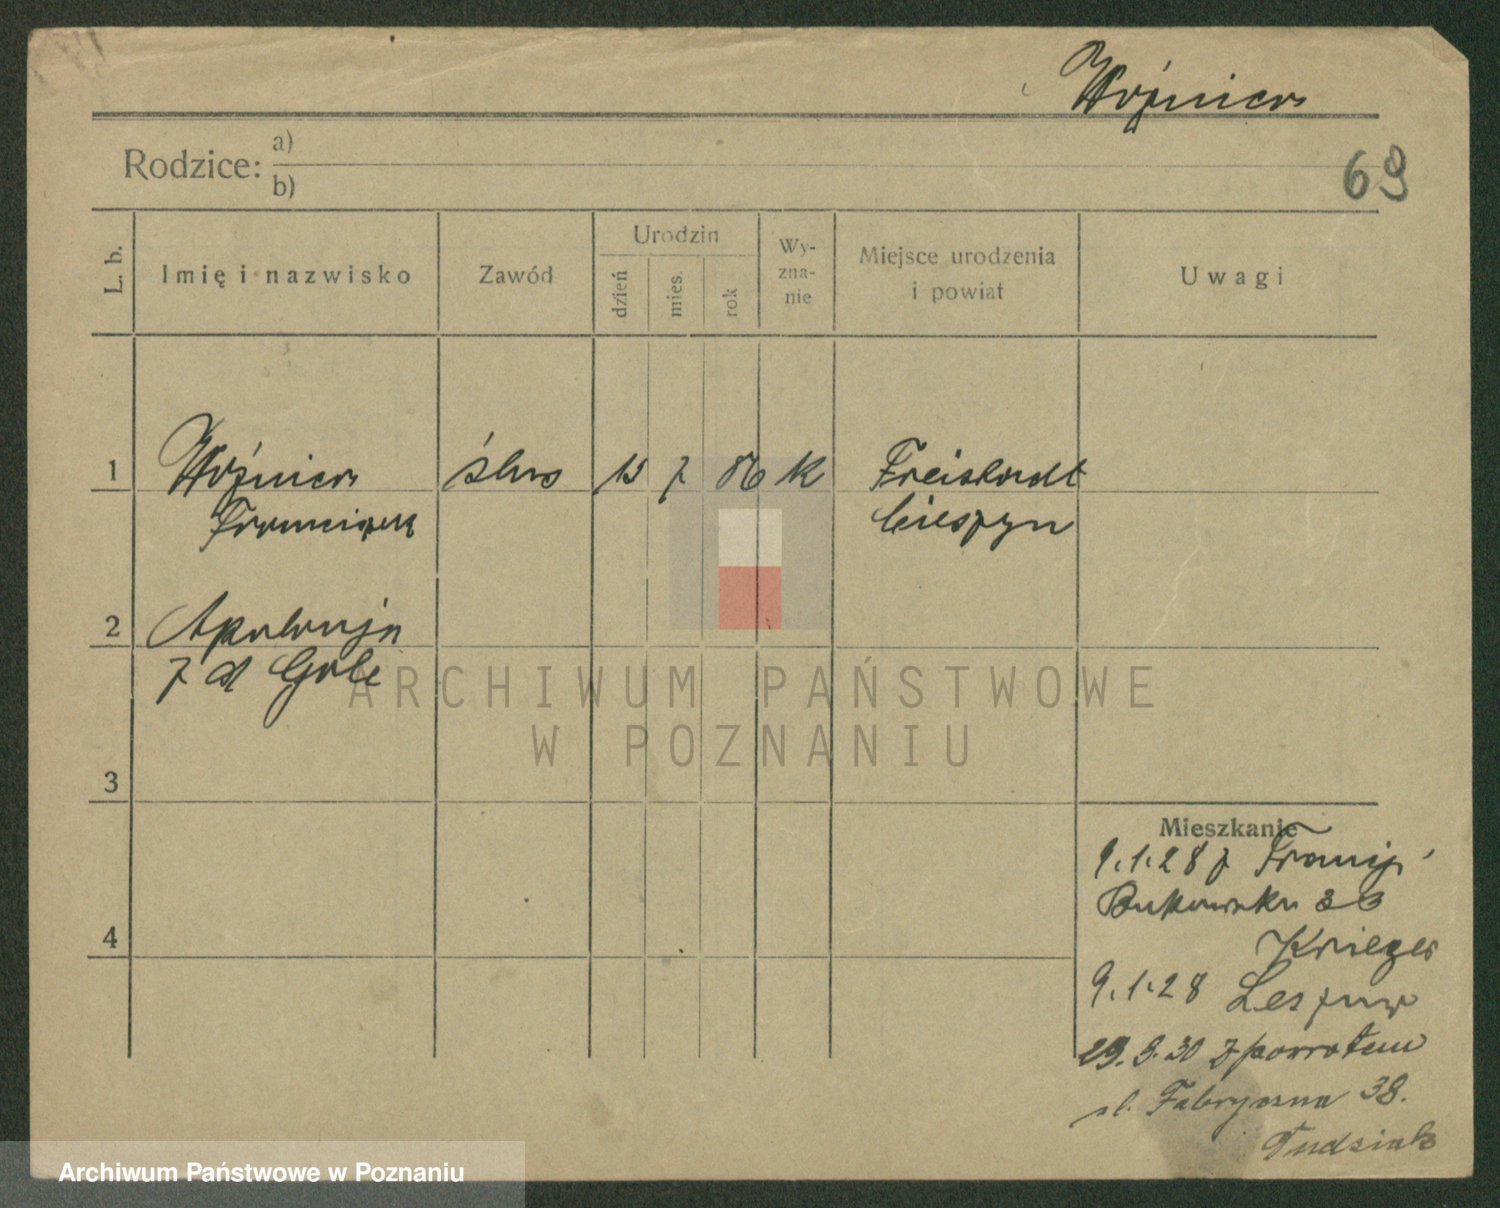 Woźnica
Rodzice: a)
b)
69
L. b.
Imię i nazwisko
Zawód
Urodzin
dzień
mies.
rok
Wy-
zna-
nie
Miejsce urodzenia
i powiat
Uwagi
1 Woźnica 15 7 86 K Freistadt
Franciszek Cieszyn
2 Apolonja
z d Gole
3
4
Mieszkanie
9.1.28 z Francji
Bukowska 33
Krieger
9.1.28 Leszno
29.9.30 z powrotem
ul. Fabryczna 38.
Tudziak
ARCHIWUM PAŃSTWOWE
W POZNANIU
Archiwum Państwowe w Poznaniu